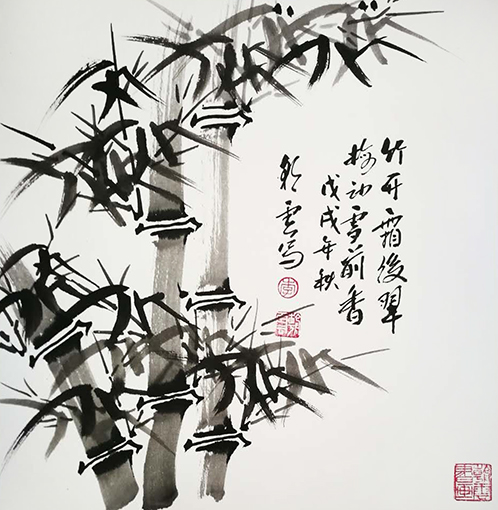 竹开霜後翠
梅动雪前香
戊戌年秋
雲写
李